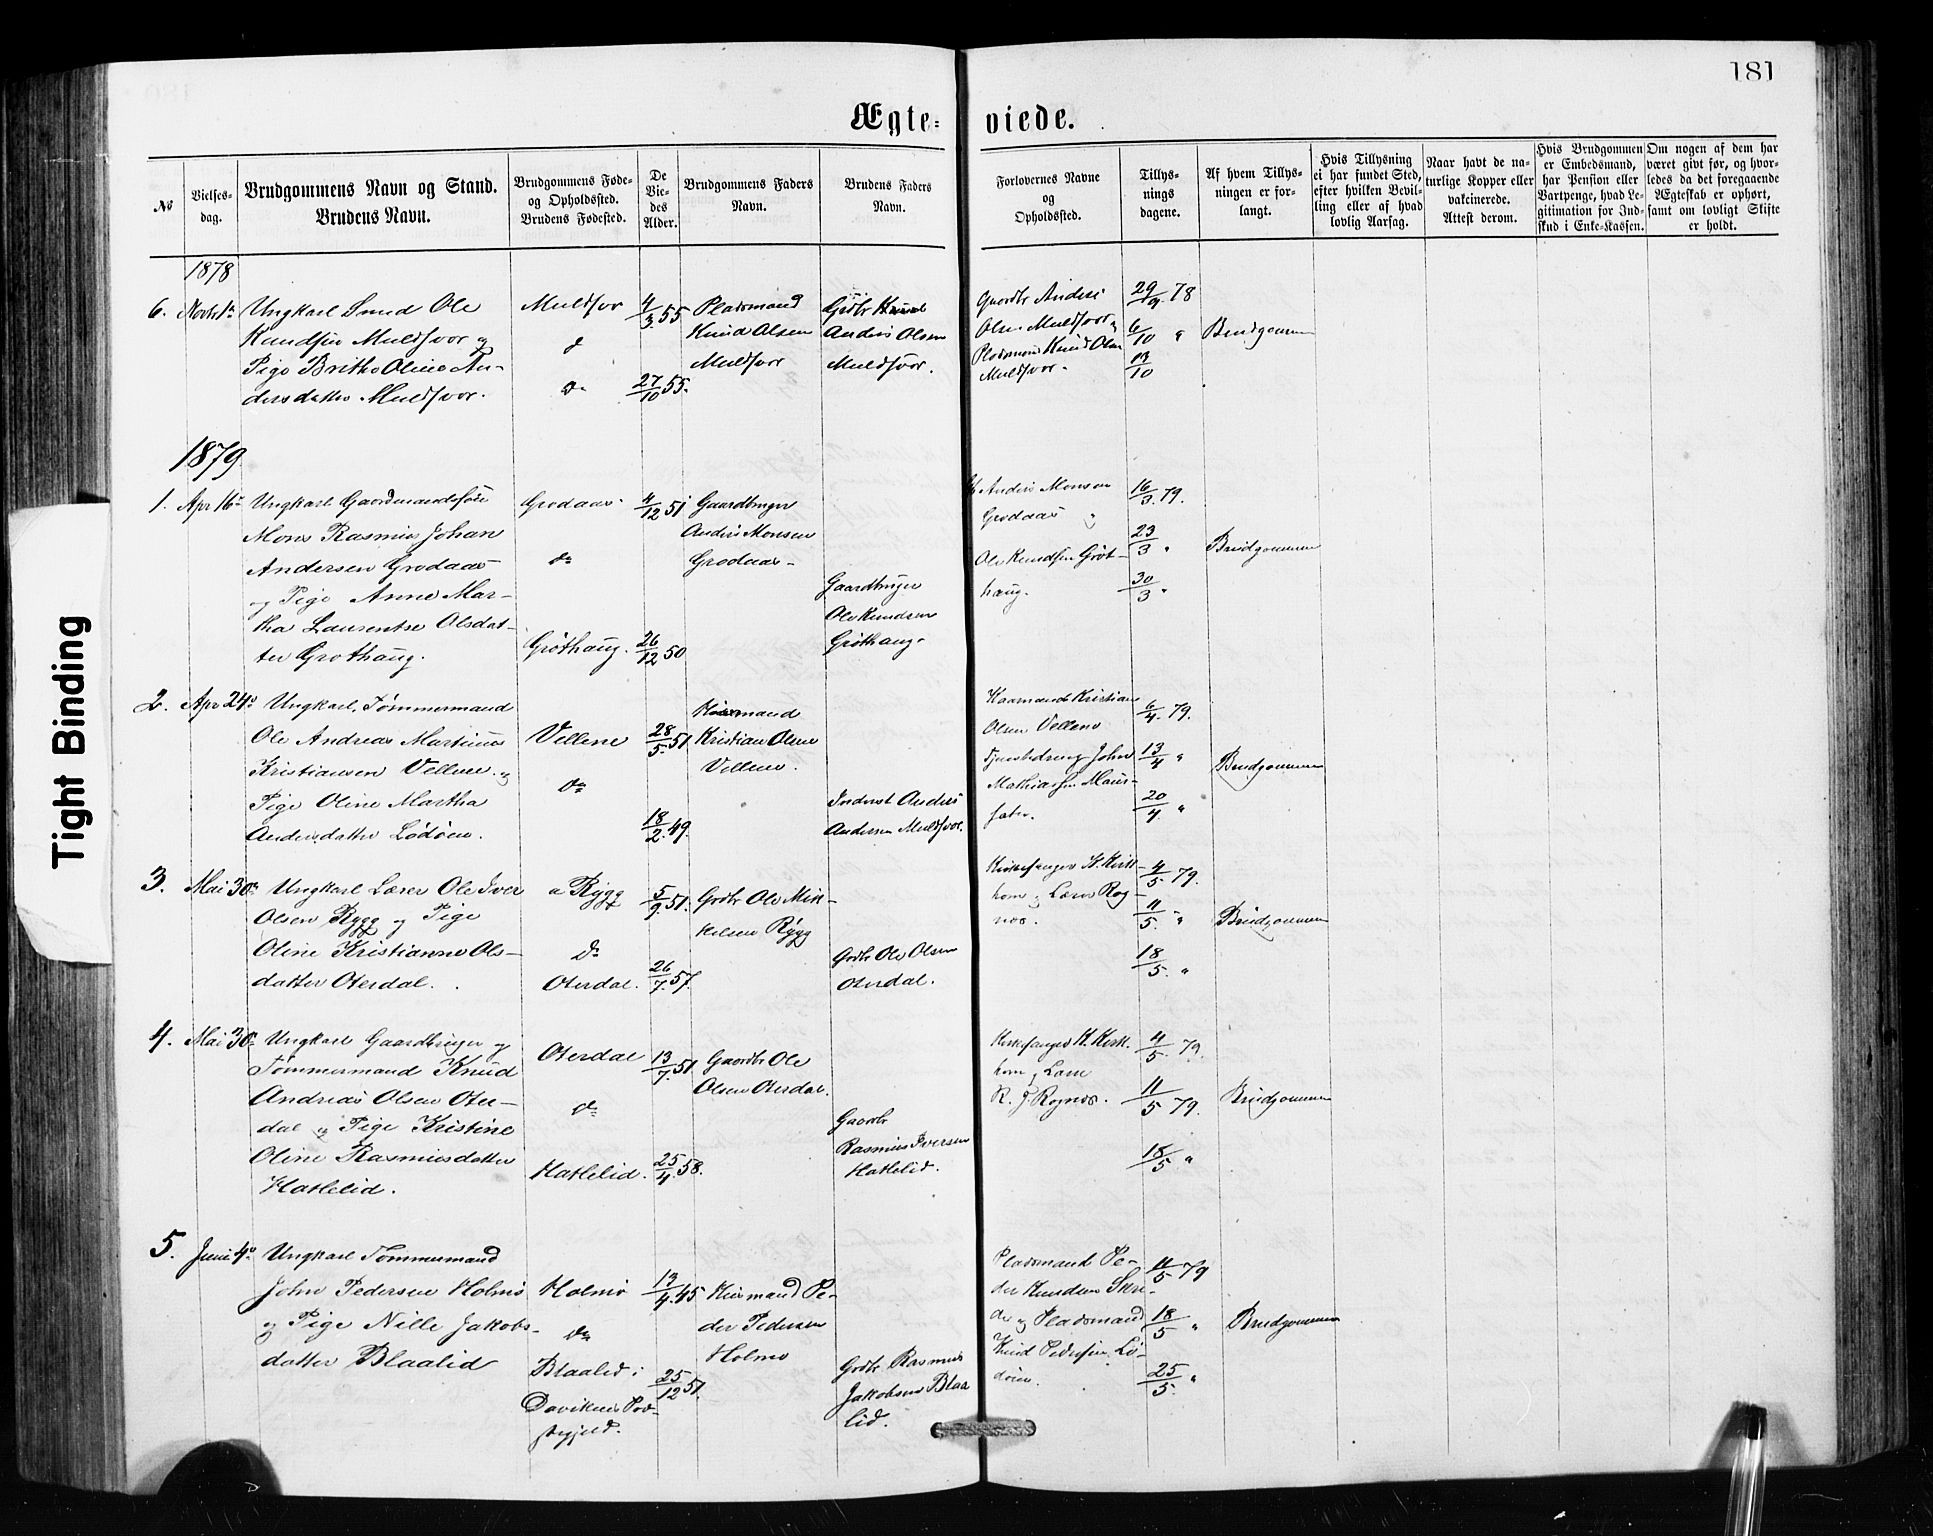 181
Ægte=
viede.
No
Vielses-
dag.
Brudgommens Navn og Stand.
Brudens Navn.
Brudgommens Føde-
og Opholdssted.
Brudens Fødested.
De
Vie-
des
Alder.
Brudgommens Faders
Navn.
Brudens Faders
Navn.
Forlovernes Navne
og
Opholdssted.
Tillys-
nings
dagene.
Af hvem Tillys-
ningen er for-
langt.
Hvis Tillysning
ei har fundet Sted,
efter hvilken Bevil-
ling eller af hvad
lovlig Aarsag.
Naar havt de na-
turlige Kopper eller
vakcinerede.
Attest derom.
Hvis Brudgommen
er Embedsmand,
har Pension eller
Vartpenge, hvad Le-
gitimation for Ind-
skud i Enke-Kassen.
Om nogen af dem har
været givt før, og hvor-
ledes da det foregaaende
Ægteskab er ophørt,
samt om lovligt Skifte
er holdt.
1878
6.
Novbr 1ste
Ungkarl Smed Ole
Knudsen Muldsvor og
Pige Brithe Oline An-
dersdatter Muldsvor.
Muldsvor
do
do
4/3 55
27/10 55.
Pladsmand
Knud Olsen
Muldsvor
Gdbr
Anders Olsen
Muldsvor.
Gaardbr Anders
Olsen Muldsvor og
Pladsmand Knud Olsen
Muldsvor.
29/9 78
6/10 "
13/10
Brudgommen
1879
1.
Apr 16de
Ungkarl Gaardmandssøn
Mons Rasmus Johan
Andersen Grodaas
og Pige Anne Mar-
tha Laurentse Olsdat-
ter Grothaug.
Grodaas
do
Grøthaug.
4/12 51
26/12 50
Gaardbruger
Anders Monsen
Grodaas
Gaardbruger
Ole Knudsen
Grøthaug.
Anders Monsen
Grodaas og
Ole Knudsen Grøt-
haug.
16/3 79.
23/3 "
30/3 "
Brudgommen
2.
Apr 24de
Ungkarl, Tømmermand
Ole Andreas Martinus
Kristiansen Vellene og
Pige Oline Martha
Andersdatter Lødøen.
Vellene
do
28/5 51
18/2 49.
Huusmand
Kristian Olsen
Vellene.
Inderst Anders
Andersen Muldsvor.
Kaarmand Kristian
Olsen Vellene
Tjenestedreng John
Mathiassen Maur-
sæter.
6/4 79.
13/4 "
20/4 "
Brudgommen
3.
Mai 30te
Ungkarl Lærer Ole Iver
Olsen Rygg og Pige
Oline Kristianne Ols-
datter Oterdal.
Rygg
do
Oterdal.
5/9 51.
26/7 57.
Gdbr Ole Mik-
kelsen Rygg
Gdbr Ole Olsen
Oterdal.
Kirkesanger K. Kirk-
horn og Lærer Rog-
næs.
4/5 79.
11/5 "
18/5 "
Brudgommen
4.
Mai 30te
Ungkarl Gaardbruger og
Tømmermand Knud
Andreas Olsen Oter-
dal og Pige Kristine
Oline Rasmusdatter
Hatlelid.
Oterdal
do
Hatlelid.
13/7 51
25/4 58.
Gaardbr Ole
Olsen Oterdal.
Gaardbr
Rasmus Iversen
Hatlelid.
Kirkesanger K. Kirk-
horn og Lærer
R. J. Rognæs.
4/5 79.
11/5 79.
18/5 "
Brudgommen
5.
Juni 4de
Ungkarl Tømmermand
John Pedersen Holmø
og Pige Nille Jakobs-
datter Blaalid
Holmø
do
Blaalid i
Davikens Præ-
stegjeld.
13/4 45
25/12 51.
Huusmand Pe-
der Pedersen
Holmø
Gdbr Rasmus
Jakobsen Blaa
lid.
Pladsmand Pe-
der Knudsen Skre-
de og Pladsmand
Knud Pedersen Lø-
døen.
11/5 79
18/5 "
25/5 "
Brudgommen
Tight Binding